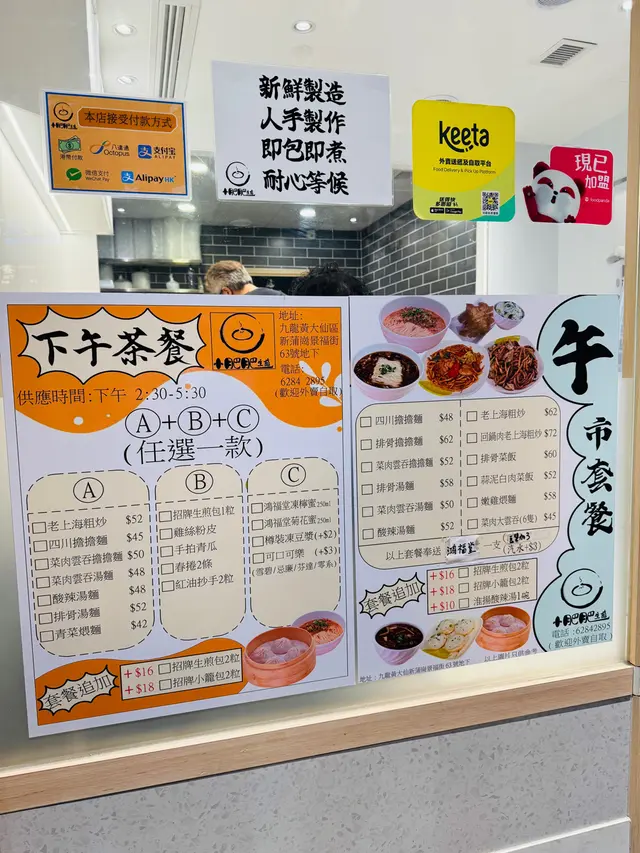 本店接受付款方式
港幣付款
八達通
Octopus
支付寶
ALIPAY
微信支付
WeChat Pay
AlipayHK
新鮮製造
人手製作
即包即煮
耐心等候
keeta
外賣速遞及自取平台
Food Delivery & Pick Up Platform
現已
加盟
foodpanda
下午茶餐
供應時間:下午 2:30-5:30
地址:
九龍黃大仙區
新蒲崗景福街
63號地下
電話:
6284 2895
(歡迎外賣自取)
A+B+C
(任選一款)
A
老上海粗炒 $52
四川擔擔麵 $45
菜肉雲吞擔擔麵 $50
菜肉雲吞湯麵 $48
酸辣湯麵 $48
排骨湯麵 $52
青菜煨麵 $42
B
招牌生煎包1粒
雞絲粉皮
手拍青瓜
春捲2條
紅油抄手2粒
C
鴻福堂凍檸蜜 250ml
鴻福堂菊花蜜 250ml
樽裝凍豆漿 (+$2)
可口可樂 (+$3)
(雪碧/忌廉/芬達/零系)
套餐追加
+$16 招牌生煎包2粒
+$18 招牌小籠包2粒
午市套餐
四川擔擔麵 $48
排骨擔擔麵 $62
菜肉雲吞擔擔麵 $52
排骨湯麵 $58
菜肉雲吞湯麵 $50
酸辣湯麵 $52
老上海粗炒 $62
回鍋肉老上海粗炒 $72
排骨菜飯 $60
蒜泥白肉菜飯 $52
嫩雞煨麵 $58
菜肉大雲吞(6隻) $45
以上套餐奉送 鴻福堂 一支
(汽水+$3)
套餐追加
+$16 招牌生煎包2粒
+$18 招牌小籠包2粒
+$10 淮揚酸辣湯1碗
電話:62842895
(歡迎外賣自取)
地址:九龍黃大仙新蒲崗景福街63號地下